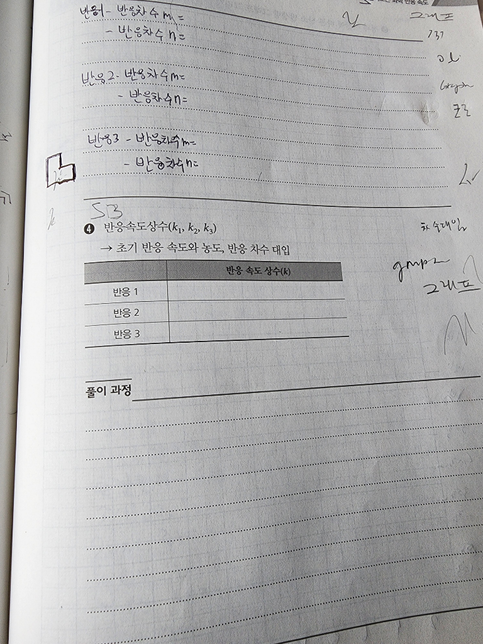 반응1 - 반응차수 m=
- 반응차수 n=
그래프
반응2 - 반응차수 m=
- 반응차수 n=
반응3 - 반응차수 m=
- 반응차수 n=
❹ 반응속도상수(k₁, k₂, k₃)
→ 초기 반응 속도와 농도, 반응 차수 대입
반응 속도 상수(k)
그래프
반응 1
반응 2
반응 3
풀이 과정